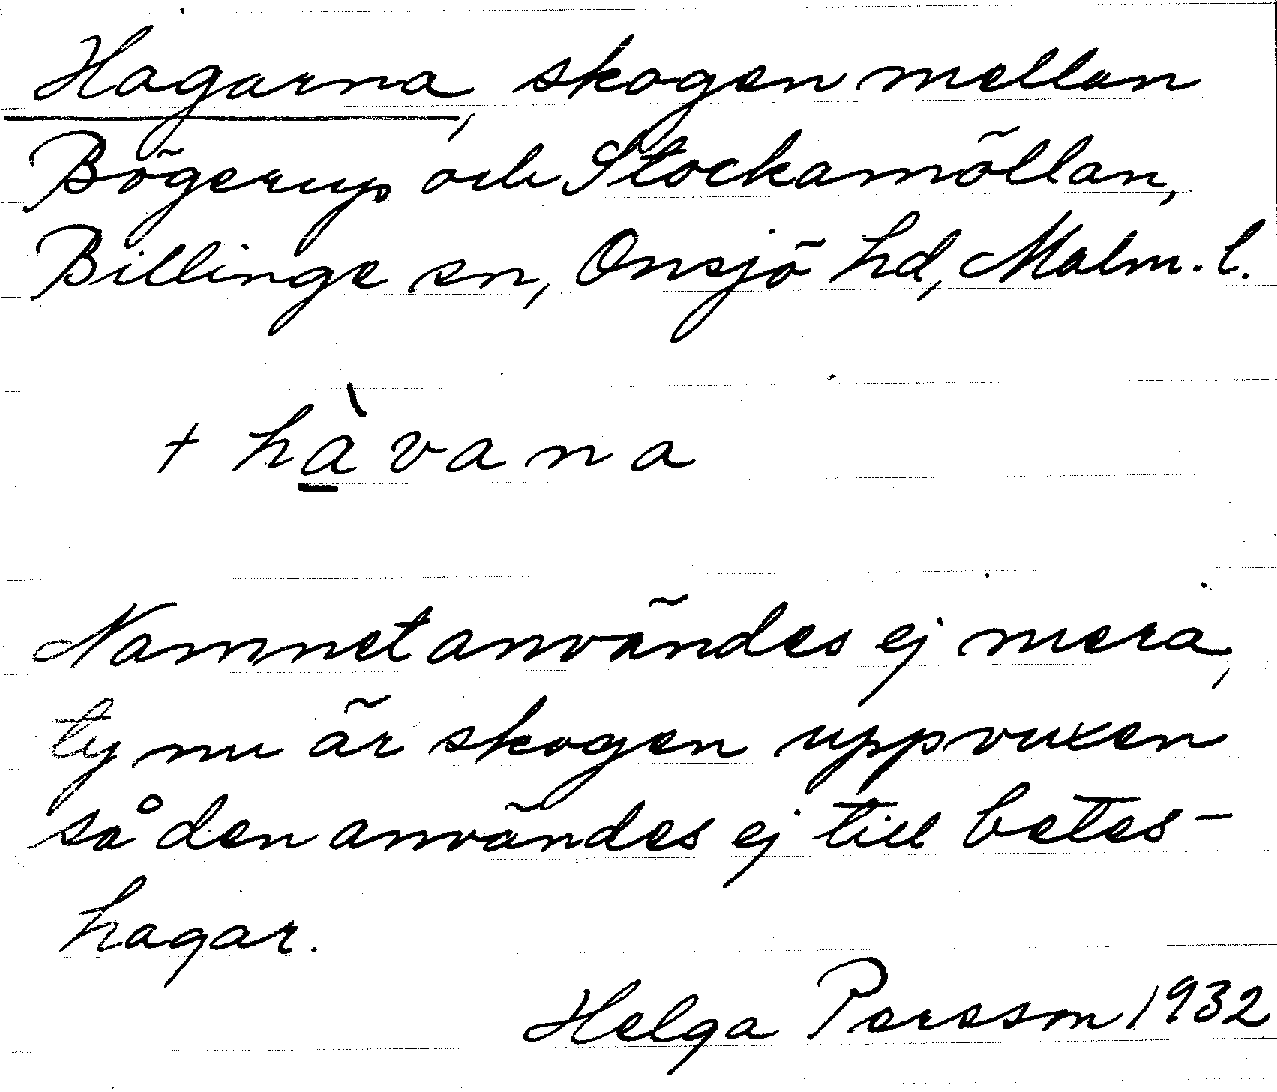 Hagarna, skogen mellan
Bögerup och Stockamöllan,
Billinge sn, Onsjö hd, Malm. l.
+ hàvana
Namnet användes ej mera,
ty nu är skogen uppvuxen
så den användes ej till betes-
hagar.
Helga Persson 1932